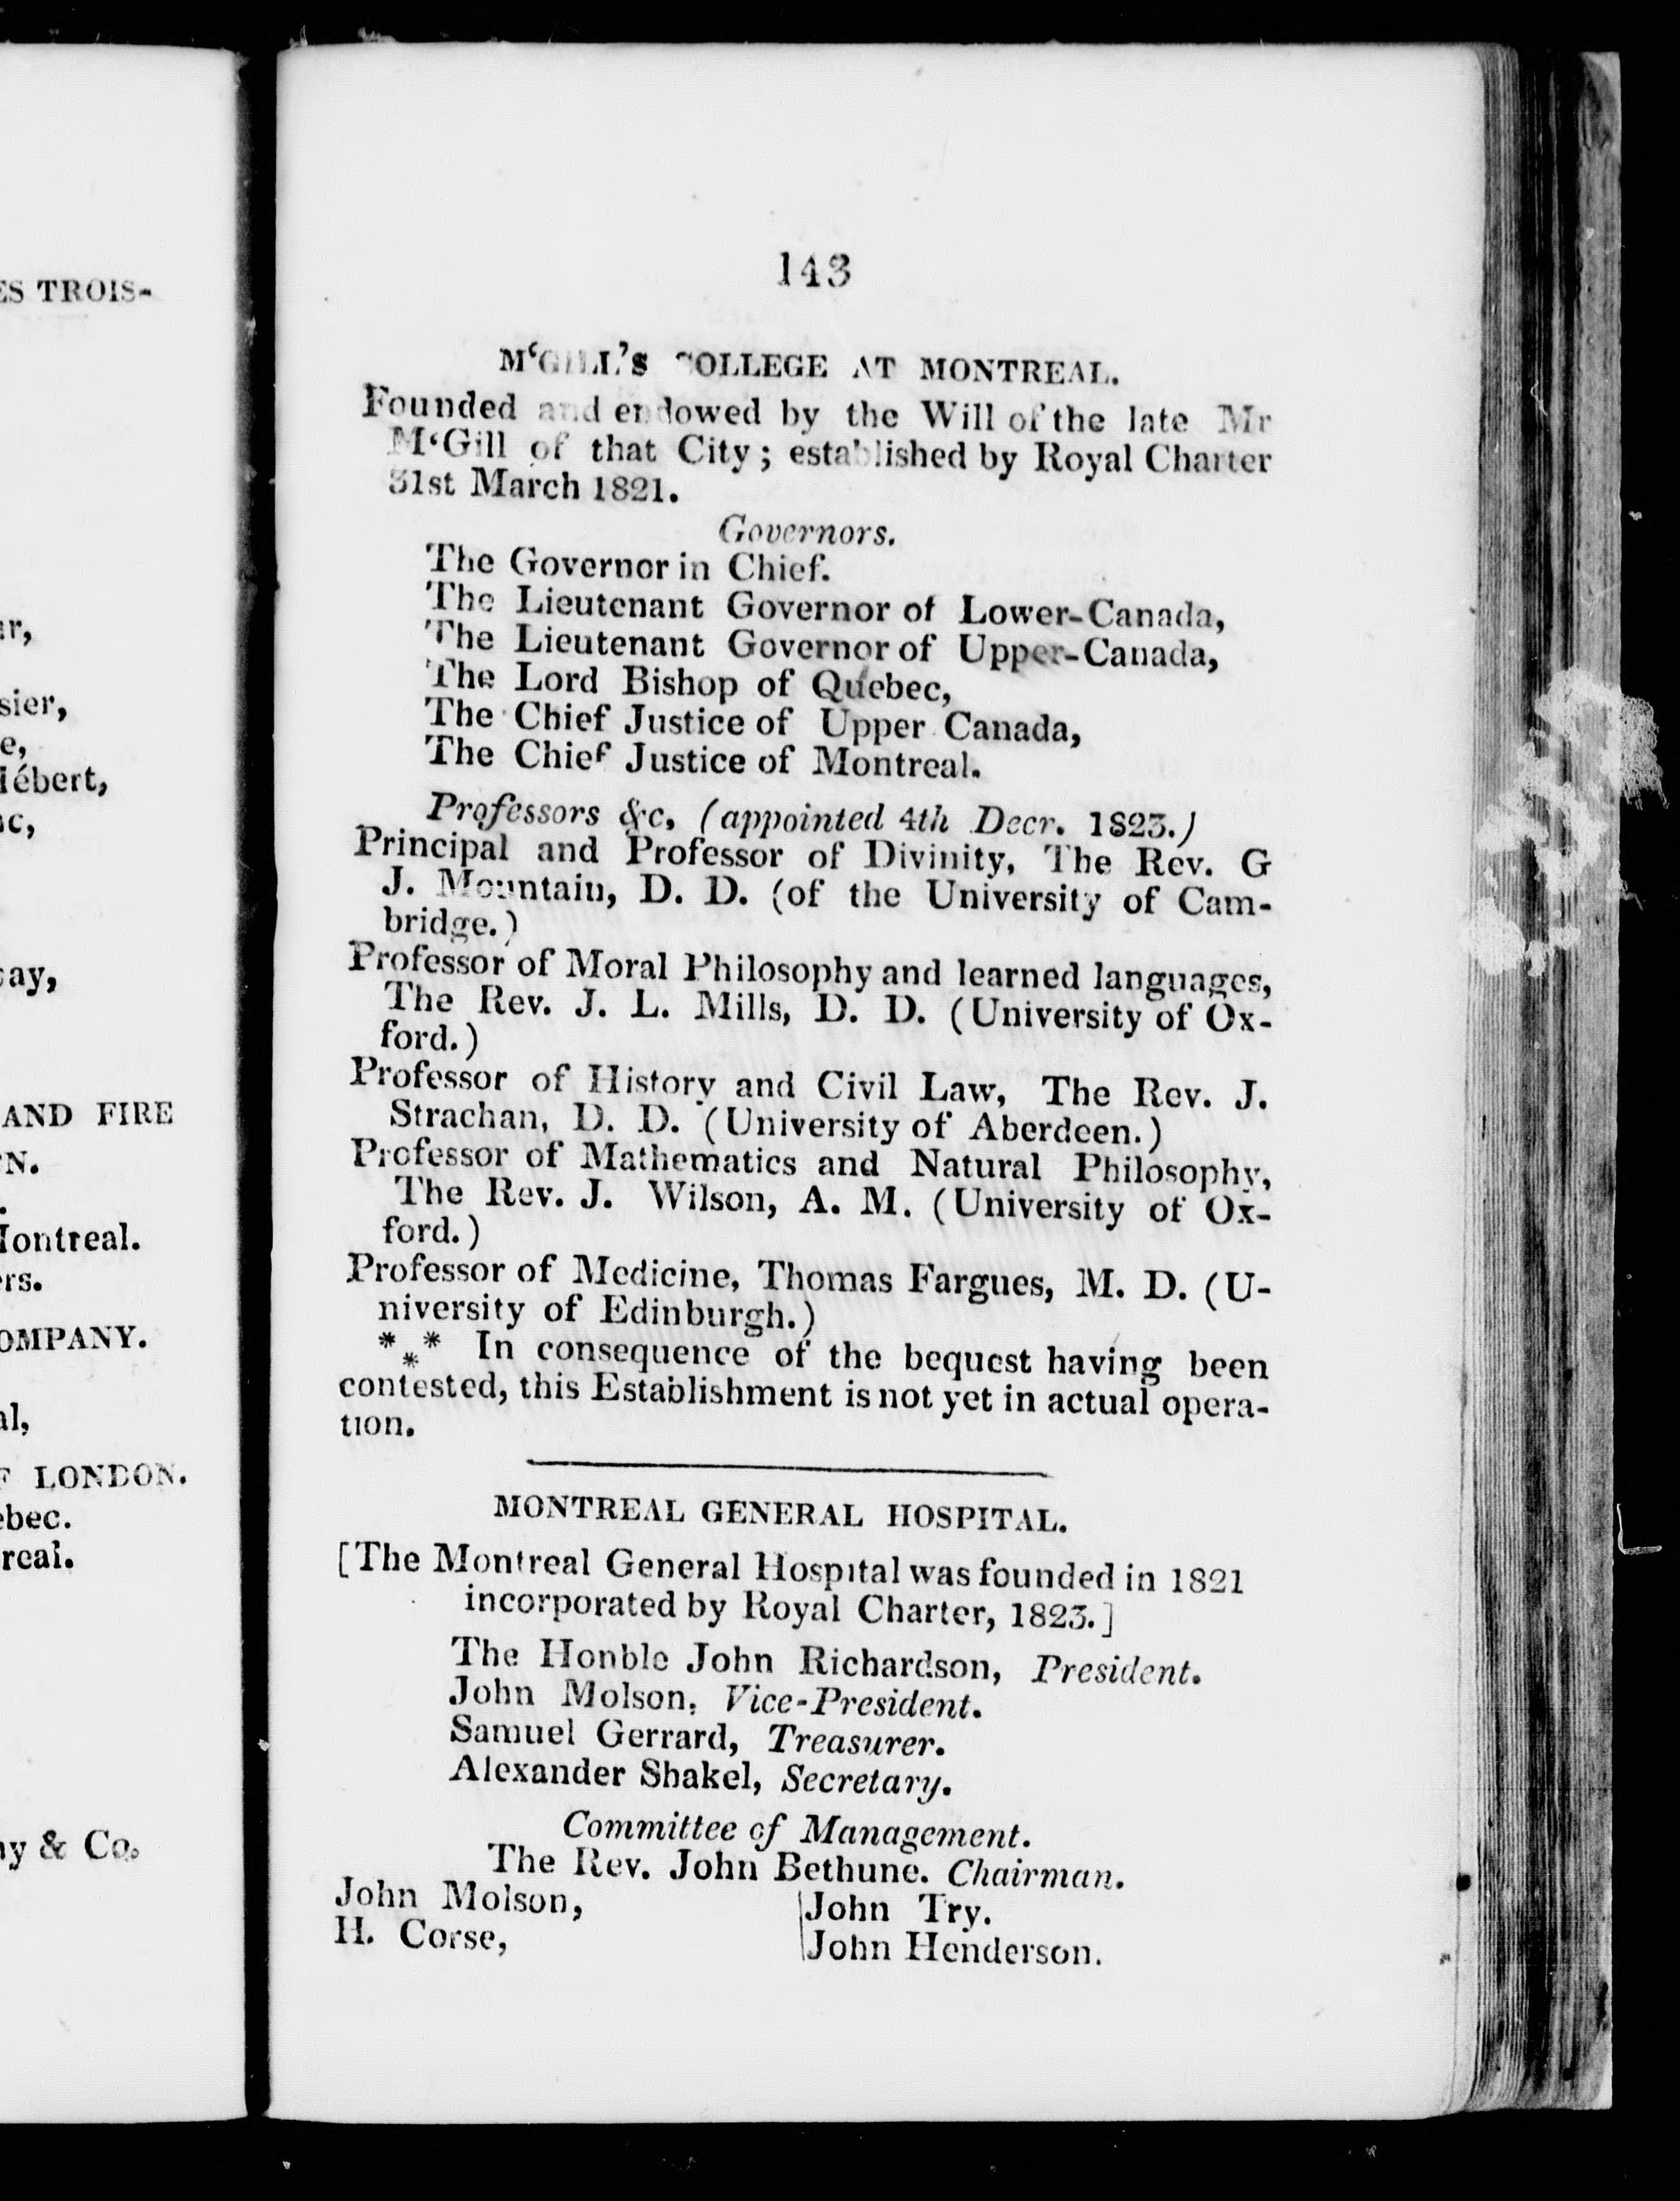 ES TROIS-
sier,
Hébert,
AND FIRE
Montreal.
COMPANY.
LONDON.
& Co.
143
M‘GILL'S COLLEGE AT MONTREAL.
Founded and endowed by the Will of the late Mr
M‘Gill of that City; established by Royal Charter
31st March 1821.
Governors.
The Governor in Chief.
The Lieutenant Governor of Lower-Canada,
The Lieutenant Governor of Upper-Canada,
The Lord Bishop of Quebec,
The Chief Justice of Upper Canada,
The Chief Justice of Montreal.
Professors &c, (appointed 4th Decr. 1823.)
Principal and Professor of Divinity, The Rev. G
J. Mountain, D. D. (of the University of Cam-
bridge.)
Professor of Moral Philosophy and learned languages,
The Rev. J. L. Mills, D. D. (University of Ox-
ford.)
Professor of History and Civil Law, The Rev. J.
Strachan, D. D. (University of Aberdeen.)
Professor of Mathematics and Natural Philosophy,
The Rev. J. Wilson, A. M. (University of Ox-
ford.)
Professor of Medicine, Thomas Fargues, M. D. (U-
niversity of Edinburgh.)
*** In consequence of the bequest having been
contested, this Establishment is not yet in actual opera-
tion.
MONTREAL GENERAL HOSPITAL.
[The Montreal General Hospital was founded in 1821
incorporated by Royal Charter, 1823.]
The Honble John Richardson, President.
John Molson, Vice-President.
Samuel Gerrard, Treasurer.
Alexander Shakel, Secretary.
Committee of Management.
The Rev. John Bethune. Chairman.
John Molson,
H. Corse,
John Try.
John Henderson.